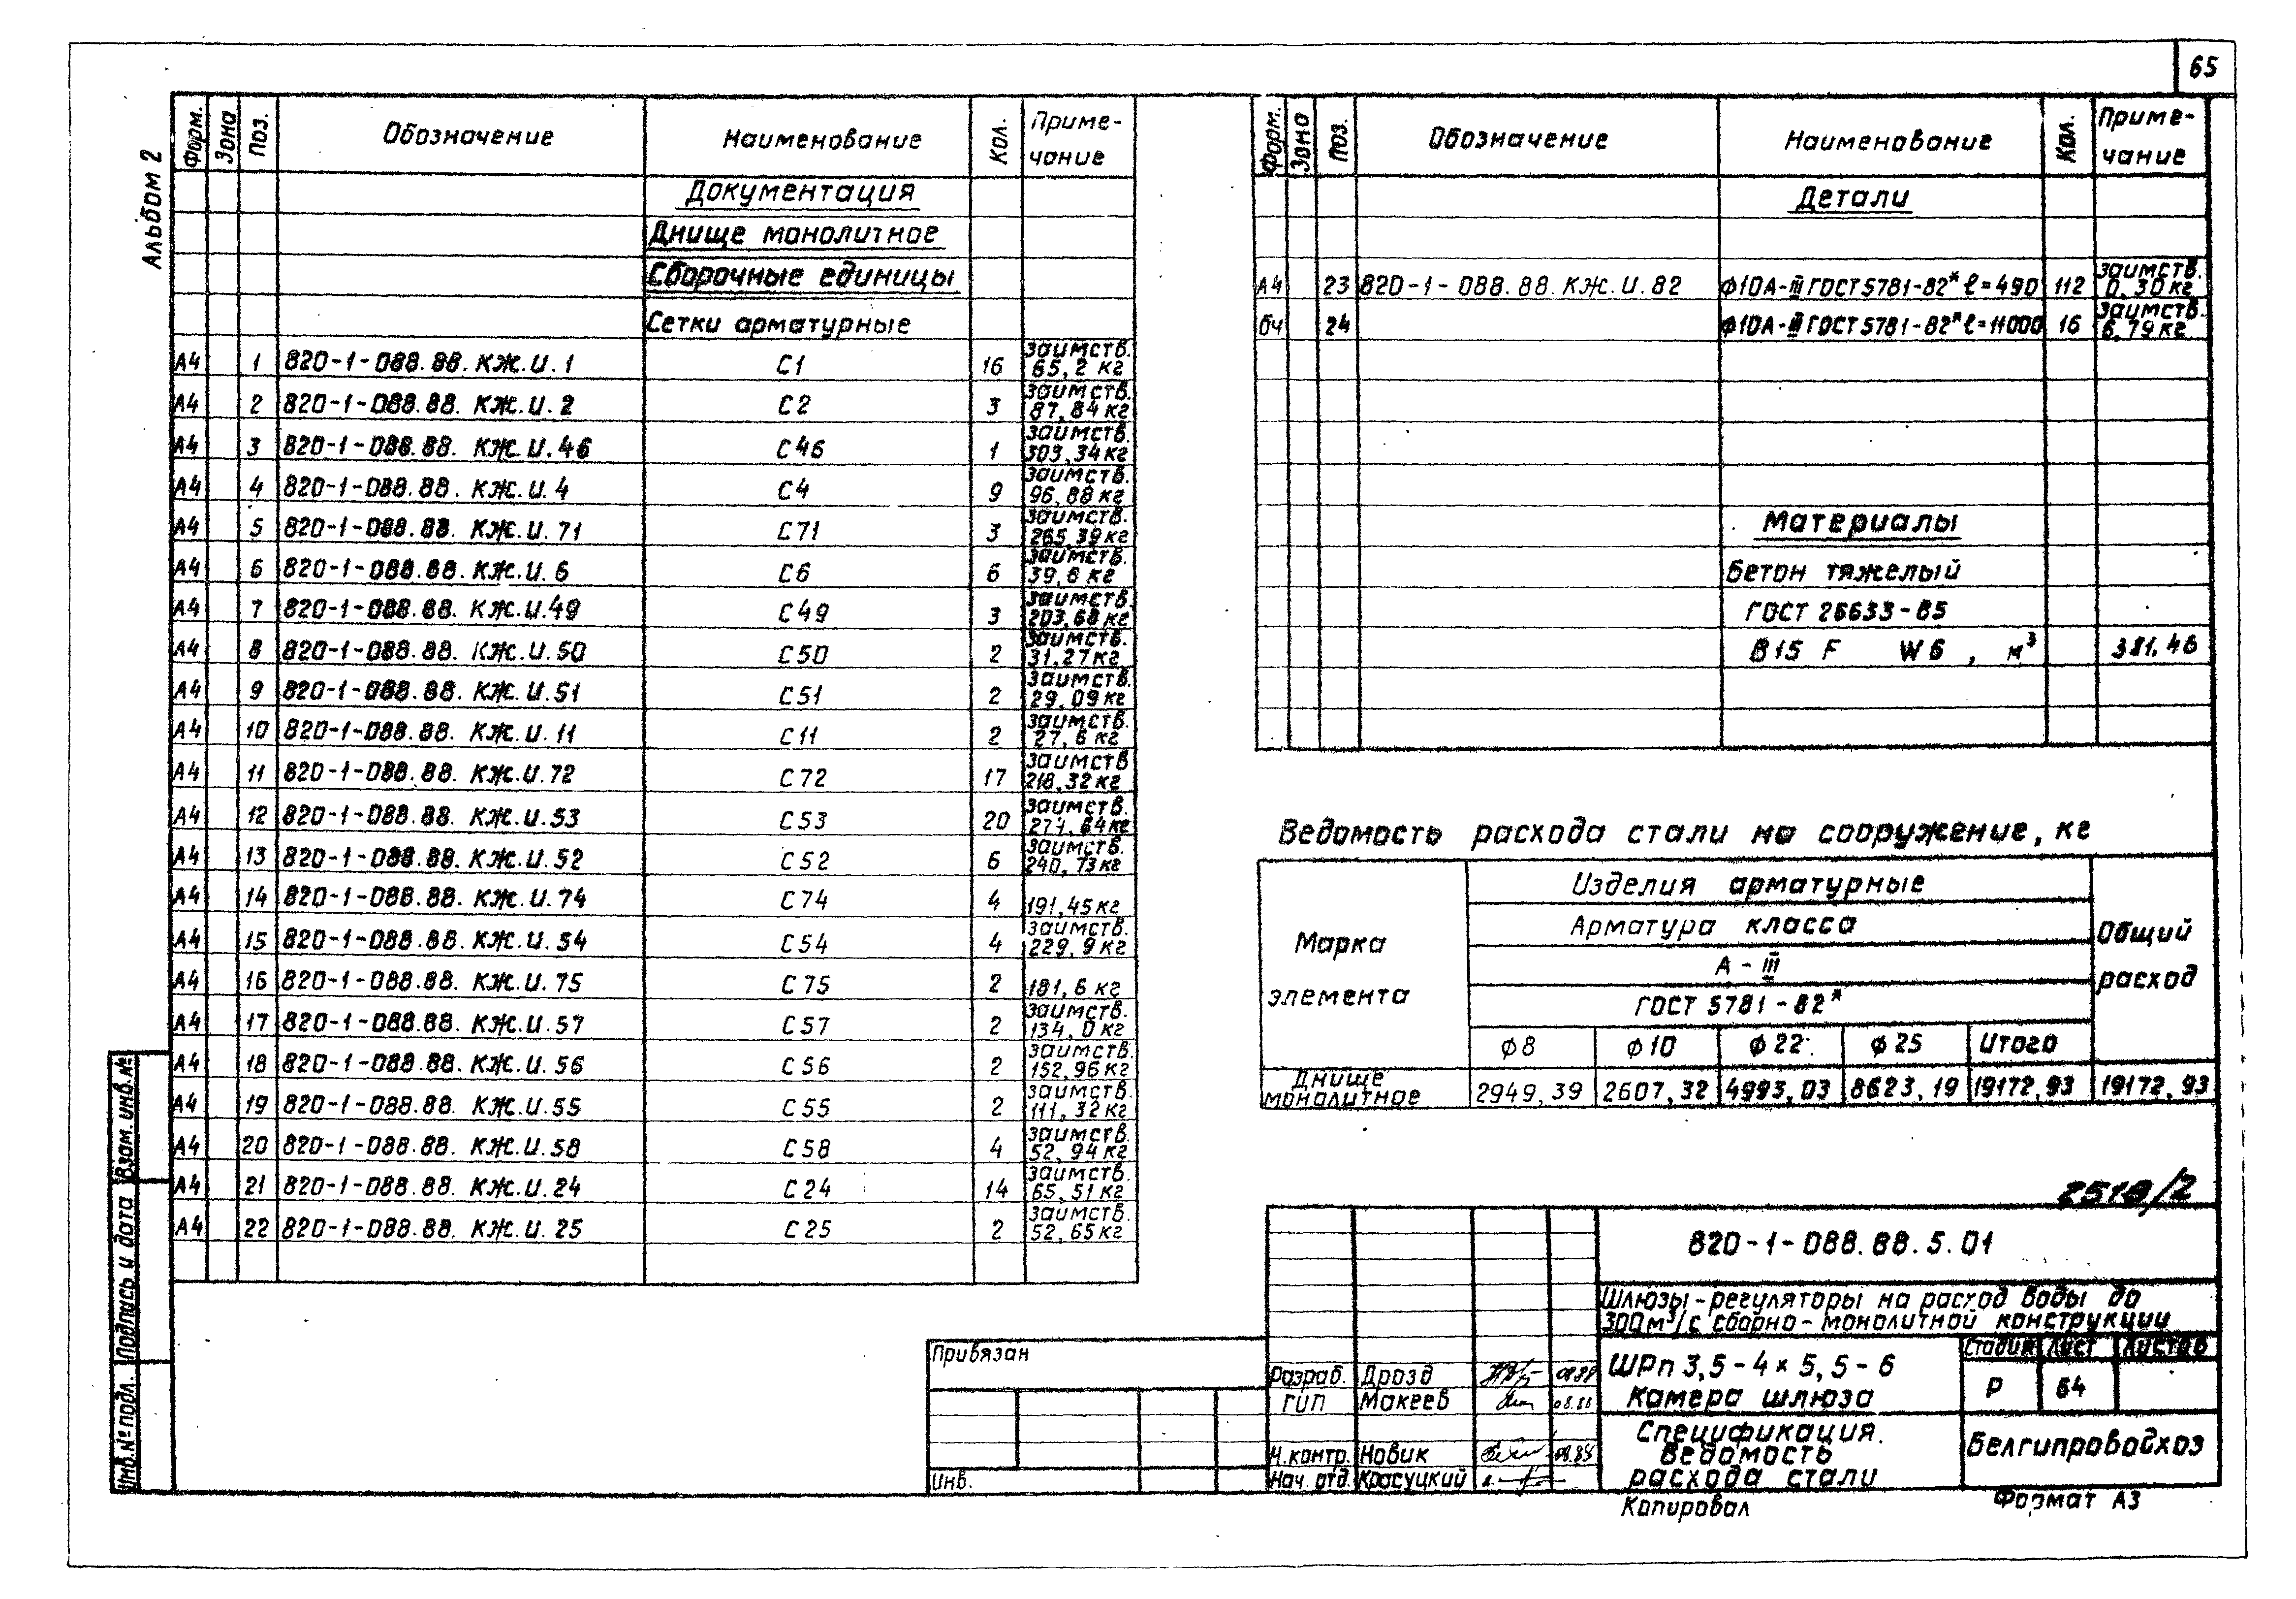 65
Альбом 2
Форм. Зона Поз. Обозначение Наименование Кол. Приме-чание
Документация
Днище монолитное
Сборочные единицы
Сетки арматурные
А4 1 820-1-088.88.КЖ.И.1 С1 16 заимств. 65,2 кг
А4 2 820-1-088.88.КЖ.И.2 С2 3 заимств. 87,84 кг
А4 3 820-1-088.88.КЖ.И.46 С46 1 заимств. 303,34 кг
А4 4 820-1-088.88.КЖ.И.4 С4 9 заимств. 96,88 кг
А4 5 820-1-088.88.КЖ.И.71 С71 3 заимств. 265,39 кг
А4 6 820-1-088.88.КЖ.И.6 С6 6 заимств. 39,6 кг
А4 7 820-1-088.88.КЖ.И.49 С49 3 заимств. 203,68 кг
А4 8 820-1-088.88.КЖ.И.50 С50 2 заимств. 31,27 кг
А4 9 820-1-088.88.КЖ.И.51 С51 2 заимств. 29,09 кг
А4 10 820-1-088.88.КЖ.И.11 С11 2 заимств. 27,6 кг
А4 11 820-1-088.88.КЖ.И.72 С72 17 заимств 218,32 кг
А4 12 820-1-088.88.КЖ.И.53 С53 20 заимств. 271,64 кг
А4 13 820-1-088.88.КЖ.И.52 С52 6 заимств. 240,73 кг
А4 14 820-1-088.88.КЖ.И.74 С74 4 191,45 кг
А4 15 820-1-088.88.КЖ.И.54 С54 4 заимств. 229,9 кг
А4 16 820-1-088.88.КЖ.И.75 С75 2 181,6 кг
А4 17 820-1-088.88.КЖ.И.57 С57 2 заимств. 134,0 кг
А4 18 820-1-088.88.КЖ.И.56 С56 2 заимств. 152,96 кг
А4 19 820-1-088.88.КЖ.И.55 С55 2 заимств. 111,32 кг
А4 20 820-1-088.88.КЖ.И.58 С58 4 заимств. 52,94 кг
А4 21 820-1-088.88.КЖ.И.24 С24 14 заимств. 65,51 кг
А4 22 820-1-088.88.КЖ.И.25 С25 2 заимств. 52,65 кг
Форм. Зона Поз. Обозначение Наименование Кол. Приме-чание
Детали
А4 23 820-1-088.88.КЖ.И.82 Ф10А-III ГОСТ 5781-82* ℓ=490 112 заимств. 0,30 кг
бч 24 Ф10А-III ГОСТ 5781-82* ℓ=11000 16 заимств. 6,79 кг
Материалы
бетон тяжелый
ГОСТ 26633-85
В15 F W6, м³ 381,46
Ведомость расхода стали на сооружение, кг
Марка элемента Изделия арматурные Общий расход
Арматура класса
А-III
ГОСТ 5781-82*
Ф8 Ф10 Ф22 Ф25 Итого
Днище монолитное 2949,39 2607,32 4993,03 8623,19 19172,93 19172,93
2518/2
820-1-088.88.5.01
Шлюзы-регуляторы на расход воды до
300 м³/с сборно-монолитной конструкции
ШРп 3,5-4×5,5-6
Камера шлюза
Стадия Лист Листов
Р 64
Спецификация.
Ведомость
расхода стали
Белгипроводхоз
Разраб. Дрозд 08.88
ГИП Макеев 08.88
Н.контр. Новик 08.88
Нач. отд. Красуцкий
Привязан
Инв.
Копировал
Формат А3
Взам. инв. №
Подпись и дата
Инв. № подл.